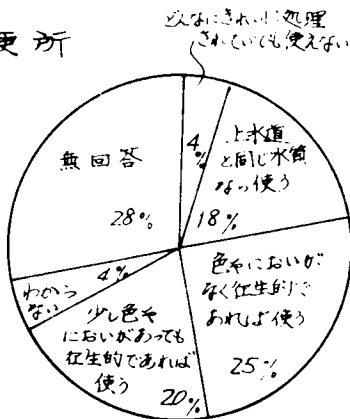 便所
どんなにきれいに処理
されていても使えない
4%
上水道
と同じ水質
なら使う
18%
色やにおいが
なく衛生的で
あれば使う
25%
少し色や
においがあっても
衛生的であれば
使う
20%
わから
ない
4%
無回答
28%